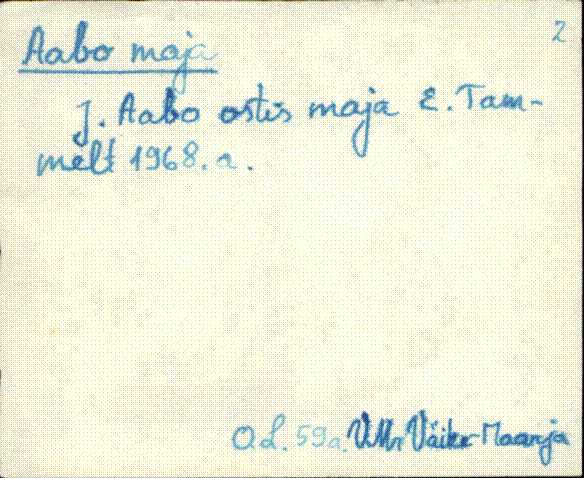 2
Aabo maja
J. Aabo ostis maja E. Tam-
melt 1968. a.
O.L. 59a. VMr Väike-Maarja